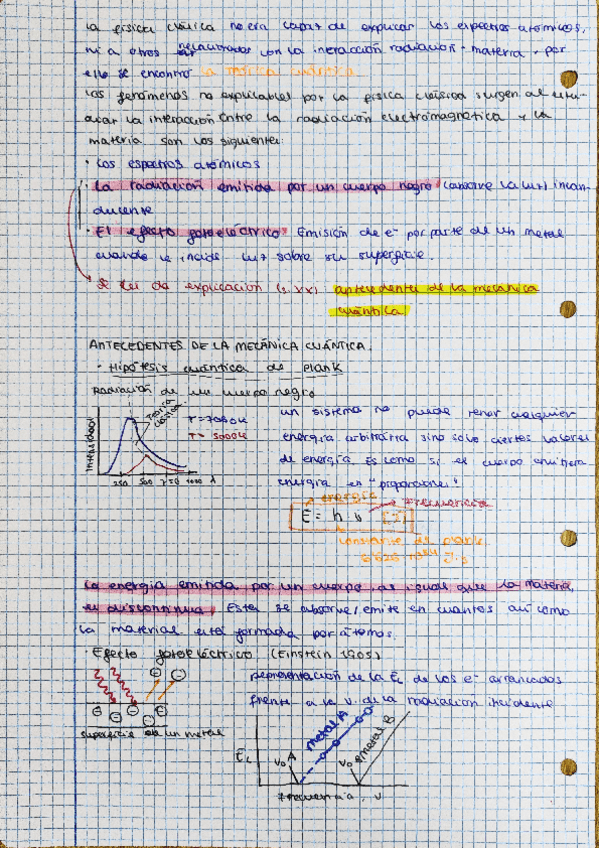 la física clásica no era capaz de explicar los espectros atómicos,
ni a otros relacionados con la interacción radiación-materia, por
ello se encontró la mecánica cuántica.
Los fenómenos no explicables por la física clásica surgen al
la interacción entre la radiación electromagnética y la
materia son los siguientes:
· Los espectros atómicos
· La radiación emitida por un cuerpo negro (absorve la luz) incan-
descente
· El efecto fotoeléctrico. Emisión de e⁻ por parte de un metal
cuando le incide luz sobre su superficie.
Se les da explicación (s. XX): antecedentes de la mecánica
cuántica
ANTECEDENTES DE LA MECÁNICA CUÁNTICA.
· Hipótesis cuántica de Plank
Radiación de un cuerpo negro
Intensidad
Teoría clásica
T = 7000K
T = 5000K
250 500 750 1000 λ
un sistema no puede tener cualquier
energía arbitraria sino solo ciertos valores
de energía. Es como si el cuerpo emitiera
energía en
energía
frecuencia
E = h · ν [J]
constante de plank
La energía emitida por un cuerpo, al igual que la materia,
es discontinua. Esta se absorve/emite en cuantos así como
la material está formada por átomos.
· Efecto fotoeléctrico (Einstein 1905)
superficie de un metal
representación de la Ec de los e⁻ arrancados
frente a la ν de la radiación incidente
Ec
ν₀ A
metal A
ν₀ B
metal B
frecuencia, ν